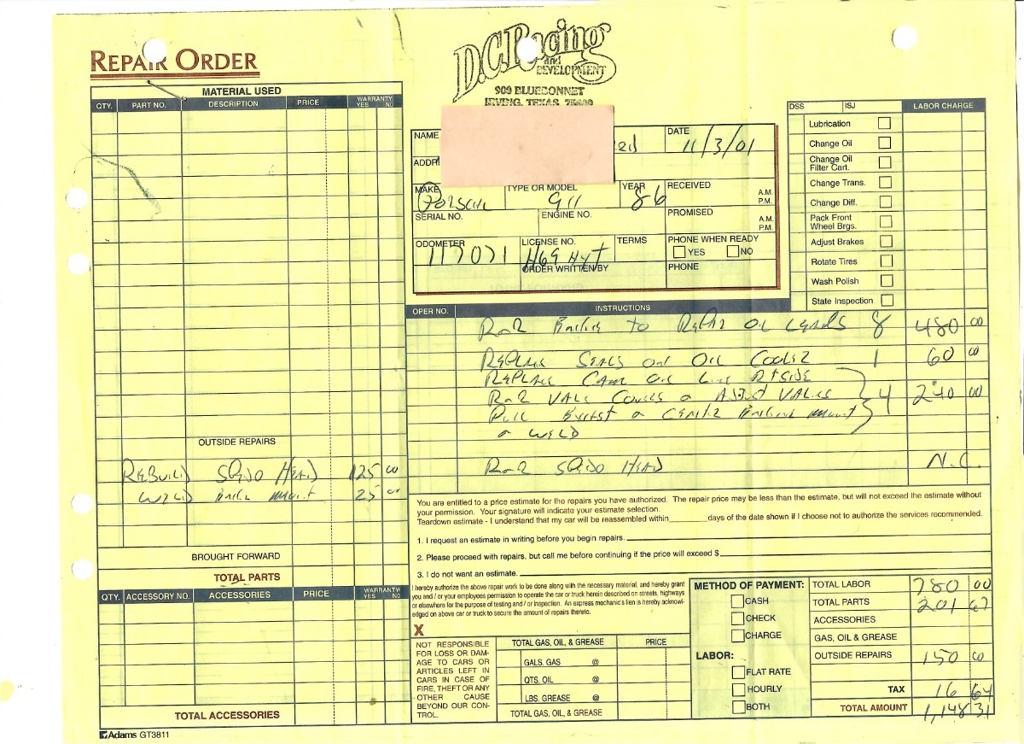 REPAIR ORDER
D.C. Racing
and
DEVELOPMENT
909 BLUEBONNET
IRVING, TEXAS
MATERIAL USED
QTY. PART NO. DESCRIPTION PRICE WARRANTY YES NO
NAME ed DATE 11/3/01
ADDR
MAKE Porsche TYPE OR MODEL 911 YEAR 86 RECEIVED A.M. P.M.
SERIAL NO. ENGINE NO. PROMISED A.M. P.M.
ODOMETER 117071 LICENSE NO. H69 HYT TERMS PHONE WHEN READY
YES NO
ORDER WRITTEN BY PHONE
DSS ISJ LABOR CHARGE
Lubrication
Change Oil
Change Oil
Filter Cart.
Change Trans.
Change Diff.
Pack Front
Wheel Brgs.
Adjust Brakes
Rotate Tires
Wash Polish
State Inspection
OPER NO. INSTRUCTIONS
RnR Engine to Repair Oil Leaks 8 480 00
Replace Seals on Oil Cooler 1 60 00
Replace Cam Oil Line Rt Side
RnR Valve Covers & Adjust Valves 4 240 00
Pull & Center Engine Mount
& Weld
RnR Speedo Head N.C.
OUTSIDE REPAIRS
Rebuild Speedo Head 125 00
Weld Engine Mount 25 00
BROUGHT FORWARD
TOTAL PARTS
You are entitled to a price estimate for the repairs you have authorized. The repair price may be less than the estimate, but will not exceed the estimate without
your permission. Your signature will indicate your estimate selection.
Teardown estimate - I understand that my car will be reassembled within days of the date shown if I choose not to authorize the services recommended.
1. I request an estimate in writing before you begin repairs.
2. Please proceed with repairs, but call me before continuing if the price will exceed $
3. I do not want an estimate.
QTY. ACCESSORY NO. ACCESSORIES PRICE WARRANTY YES NO
TOTAL ACCESSORIES
I hereby authorize the above repair work to be done along with the necessary material, and hereby grant
you and / or your employees permission to operate the car or truck herein described on streets, highways
or elsewhere for the purpose of testing and / or inspection. An express mechanic's lien is hereby acknowl-
edged on above car or truck to secure the amount of repairs thereto.
X
NOT RESPONSIBLE
FOR LOSS OR DAM-
AGE TO CARS OR
ARTICLES LEFT IN
CARS IN CASE OF
FIRE, THEFT OR ANY
OTHER CAUSE
BEYOND OUR CON-
TROL.
TOTAL GAS, OIL, & GREASE PRICE
GALS. GAS @
QTS. OIL @
LBS. GREASE @
TOTAL GAS, OIL, & GREASE
METHOD OF PAYMENT:
CASH
CHECK
CHARGE
LABOR:
FLAT RATE
HOURLY
BOTH
TOTAL LABOR 780 00
TOTAL PARTS 201 67
ACCESSORIES
GAS, OIL & GREASE
OUTSIDE REPAIRS 150 00
TAX 16 64
TOTAL AMOUNT 1,148 31
Adams GT3811